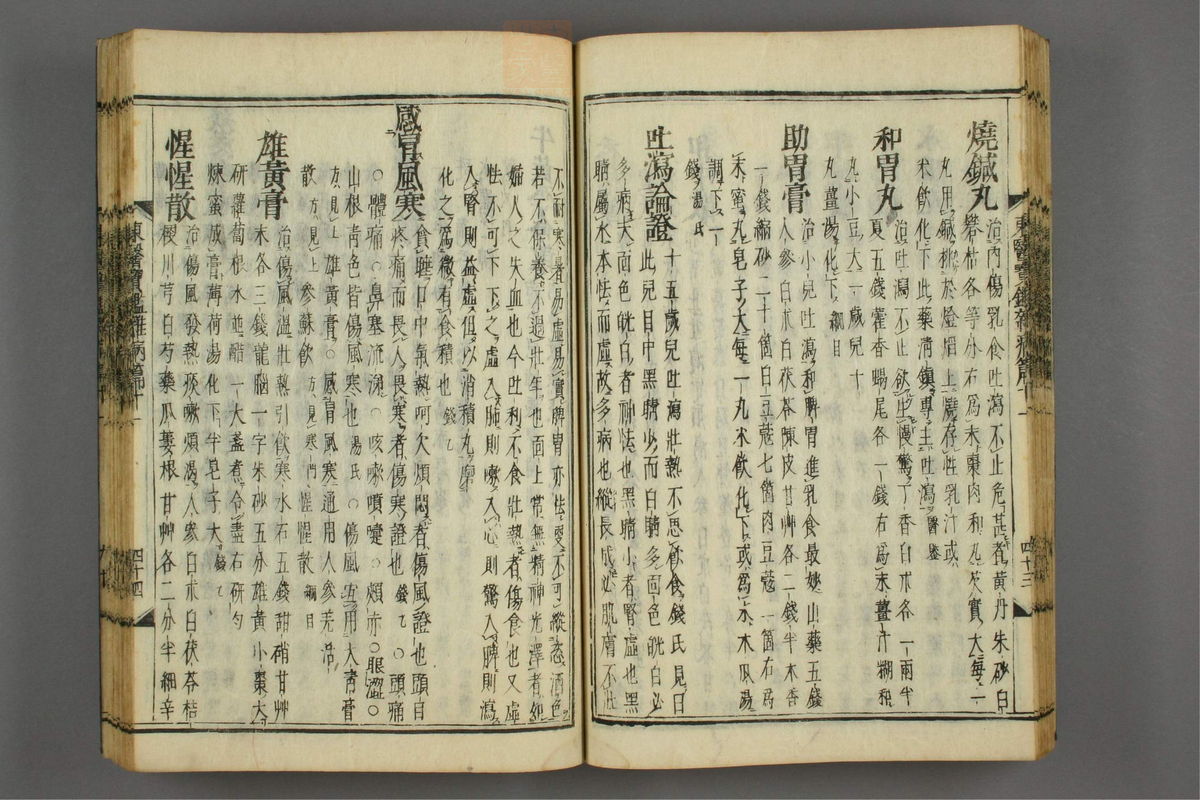 燒鍼丸 治內傷乳食吐瀉不止危甚者黃丹朱砂白
礬枯各等分右爲末棗肉和丸芡實大每一
丸用鍼挑於燈焰上燒存性乳汁或
米飮化下此藥淸鎭專主吐瀉 醫鑒
和胃丸 治吐瀉不止欲生慢驚丁香白朮各一兩半
夏五錢藿香蝎尾各一錢右爲末薑汁糊和
丸小豆大一歲兒十
丸薑湯化下 細目
助胃膏 治小兒吐瀉和脾胃進乳食最妙山藥五錢
人參白朮白茯苓陳皮甘艸各二錢半木香
一錢縮砂二十箇白豆蔲七箇肉豆蔲一箇右爲
末蜜丸皂子大每一丸米飮化下或爲末木瓜湯
調下一
錢 湯氏
吐瀉論證 十五歲兒吐瀉壯熱不思飮食錢氏見曰
此兒目中黑睛少而白睛多面色㿠白必
多病夫面色㿠白者神怯也黑睛小者腎虛也黑
睛屬水本怯而虛故多病也縱長成必肌膚不壯
不耐寒暑易虛易實脾胃亦怯更不可縱恣酒色
若不保養不過壯年也面上常無精神光澤者如
婦人之失血也今吐利不食壯熱者傷食也又虛
怯不可下下之虛入肺則嗽入心則驚入脾則瀉
入腎則益虛但以消積丸磨
化之爲微有食積也 錢乙
感冒風寒 貪睡口中氣熱呵欠煩悶者傷風證也頭目
疼痛而畏人畏寒者傷寒證也 錢乙 ○頭痛
○體痛○鼻塞流涕○咳嗽噴嚏○頰赤○眼澀○
山根靑色皆傷風寒也 湯氏 ○傷風宜用大靑膏
方見上 雄黃膏○感冒風寒通用人參羌活
散 方見上 參蘇飮 方見寒門 惺惺散 綱目
雄黃膏 治傷風溫壯熱引飮寒水石五錢甜硝甘艸
末各三錢龍腦一字朱砂五分雄黃小棗大
硏蘿蔔根水並醋一大盞煮令盡右硏勻
煉蜜成膏薄荷湯化下半皂子大 錢乙
惺惺散 治傷風發熱痰嗽煩渴人參白朮白茯苓桔
梗川芎白芍藥瓜蔞根甘艸各二分半細辛
東醫寶鑑雜病篇卷十一
四十三
東醫寶鑑雜病篇卷十一
四十四